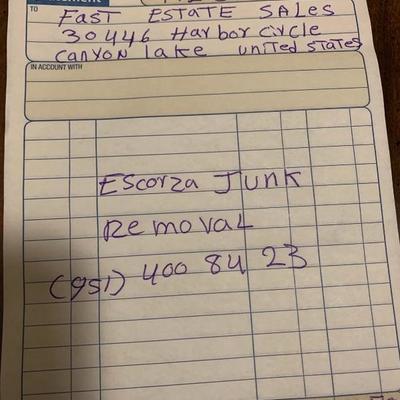 TO
FAST ESTATE SALES
30446 Harbor circle
canyon lake united states
IN ACCOUNT WITH
Escorza Junk
Removal
(951) 400 84 23